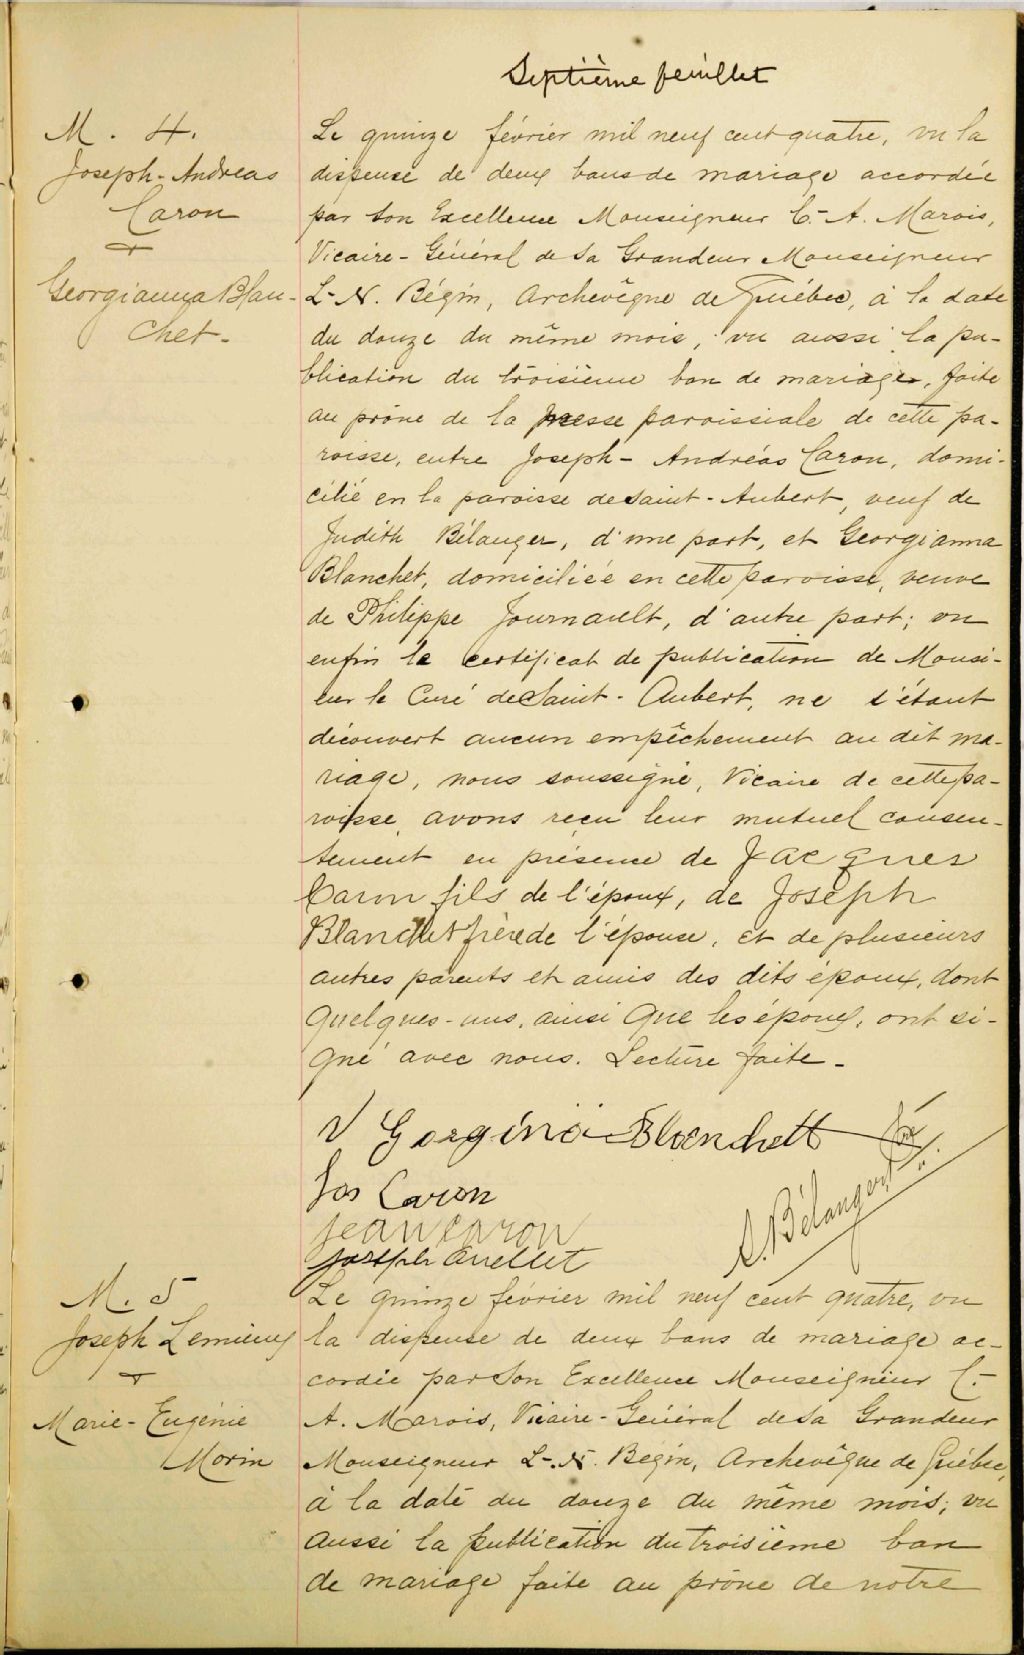 Septième feuillet
M. 4.
Joseph-Andreas
Caron
&
Georgianna Blan-
chet-
Le quinze février mil neuf cent quatre, vu la
dispense de deux bans de mariage accordée
par Son Excellence Monseigneur C.-A. Marois,
Vicaire-Général de Sa Grandeur Monseigneur
L.-N. Bégin, Archevêque de Québec, à la date
du douze du même mois, vu aussi la pu-
blication du troisième ban de mariage, faite
au prône de la messe paroissiale de cette pa-
roisse, entre Joseph-Andréas Caron, domi-
cilié en la paroisse de Saint-Aubert, veuf de
Judith Bélanger, d'une part, et Georgianna
Blanchet, domiciliée en cette paroisse, veuve
de Philippe Journault, d'autre part; vu
enfin le certificat de publication de Monsi-
eur le Curé de Saint-Aubert, ne s'étant
découvert aucun empêchement au dit ma-
riage, nous soussigné, Vicaire de cette pa-
roisse, avons reçu leur mutuel consen-
tement en présence de Jacques
Caron fils de l'époux, de Joseph
Blanchet frère de l'épouse, et de plusieurs
autres parents et amis des dits époux, dont
quelques-uns, ainsi que les époux, ont si-
gné avec nous. Lecture faite-
Gorgéna Blanchett
Jos Caron
Jean Caron
Joseph Ouellet
S. Bélanger, Ptre V.
M. 5
Joseph Lemieux
&
Marie-Eugénie
Morin
Le quinze février mil neuf cent quatre, vu
la dispense de deux bans de mariage ac-
cordée par Son Excellence Monseigneur C.-
A. Marois, Vicaire-Général de Sa Grandeur
Monseigneur L.-N. Bégin, Archevêque de Québec,
à la date du douze du même mois; vu
aussi la publication du troisième ban
de mariage faite au prône de notre